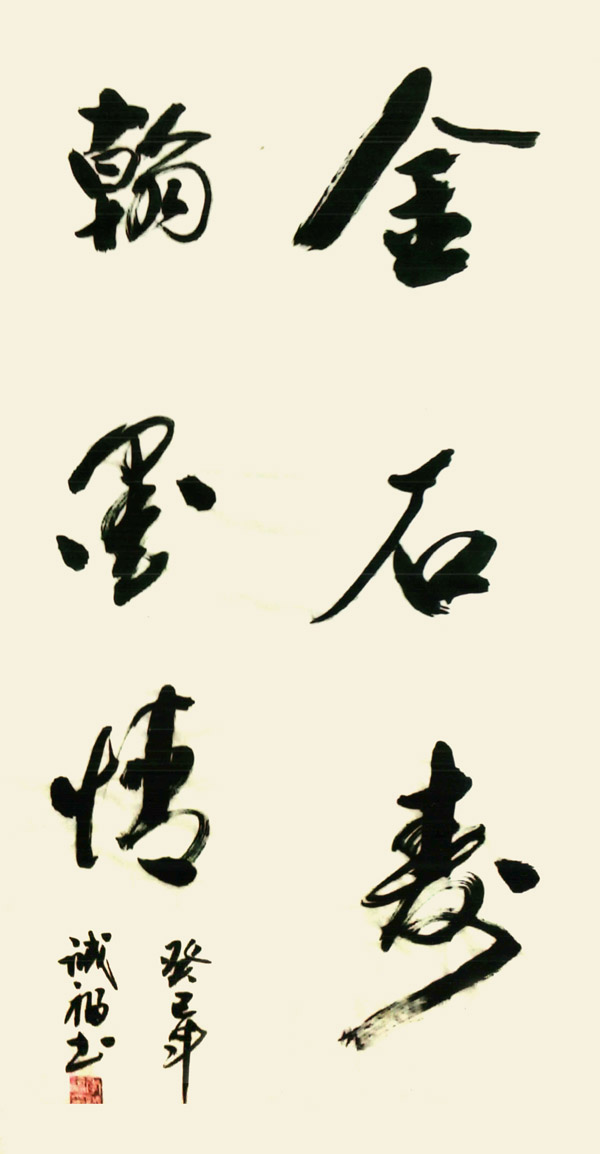 金石寿
翰墨情
癸巳年
诚福书